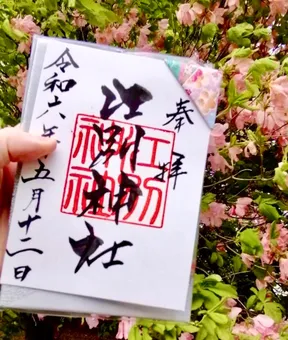 奉拝
江別神社
江別神社
令和六年五月十二日